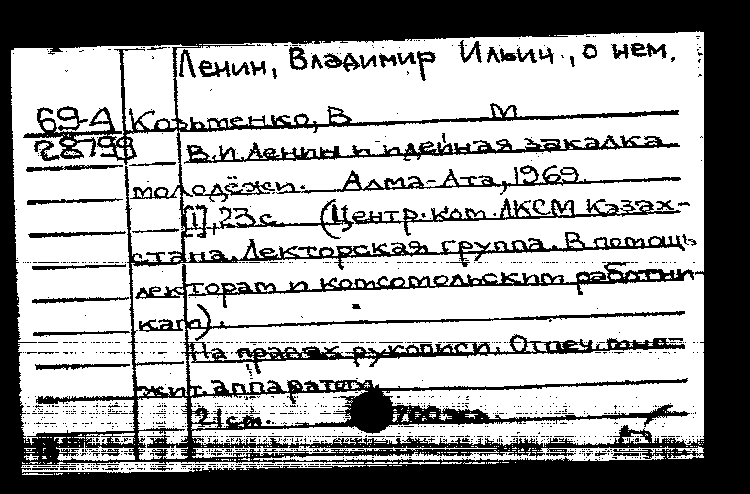 Ленин, Владимир Ильич, о нем.
69-4 Козьменко, В М
28799 В.И.Ленин и идейная закалка
молодёжи. Алма-Ата, 1969.
[1], 23 с. (Центр. ком. ЛКСМ Казах-
стана. Лекторская группа. В помощь
лекторам и комсомольским работни-
кам).
На правах рукописи. Отпеч. мно-
жит. аппаратом.
21 см. 700 экз.